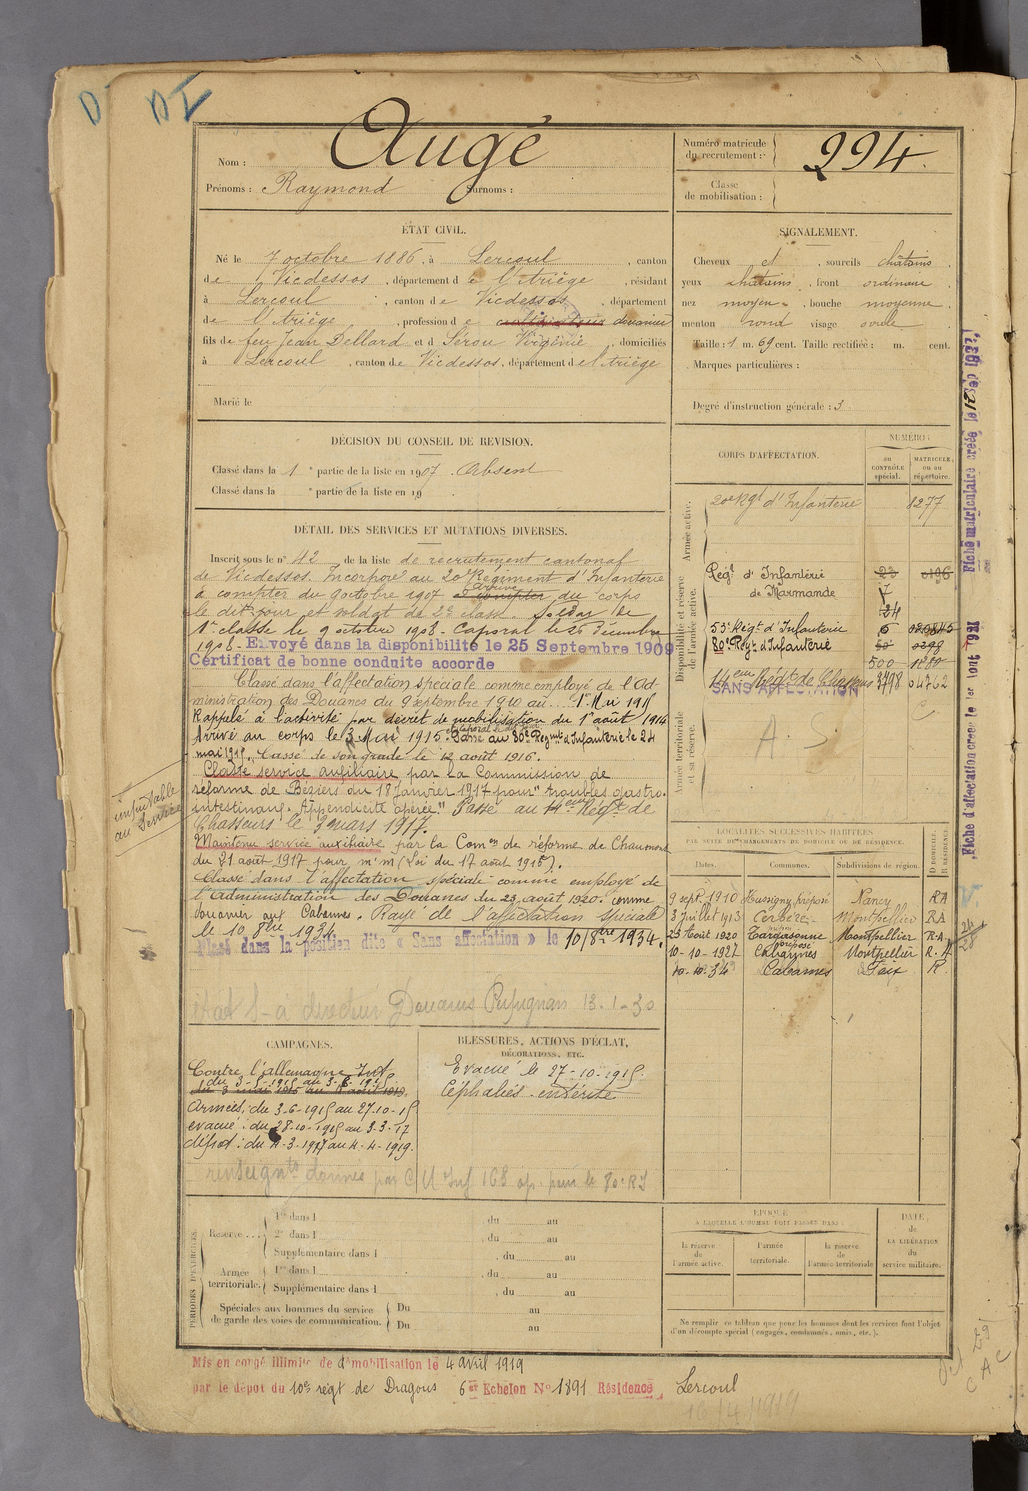 DI
Nom : Augé
Prénoms : Raymond Surnoms :
Numéro matricule du recrutement : 294
Classe de mobilisation :
ÉTAT CIVIL.
Né le 7 octobre 1886, à Lercoul, canton
de Vicdessos, département de l'Ariège, résidant
à Lercoul, canton de Vicdessos, département
de l'Ariège, profession de cultivateur douanier
fils de feu Jean Dellard et d Pérou Virginie, domiciliés
à Lercoul, canton de Vicdessos, département de l'Ariège
Marié le
SIGNALEMENT.
Cheveux et, sourcils châtains
yeux châtains, front ordinaire
nez moyen, bouche moyenne
menton rond visage ovale
Taille : 1 m. 69 cent. Taille rectifiée : m. cent.
Marques particulières :
Degré d'instruction générale : 3
DÉCISION DU CONSEIL DE RÉVISION.
Classé dans la 1 e partie de la liste en 1907. Absent
Classé dans la e partie de la liste en 19
DÉTAIL DES SERVICES ET MUTATIONS DIVERSES.
Inscrit sous le n° 42 de la liste de recrutement cantonal
de Vicdessos. Incorporé au 20e Régiment d'Infanterie
à compter du 9 octobre 1907 à compter Arrivé au corps
le dit jour et soldat de 2e classe. Soldat de
1re classe le 9 octobre 1908. Caporal le 26 Décembre
1908. Envoyé dans la disponibilité le 25 Septembre 1909
Certificat de bonne conduite accordé
Classé dans l'affectation spéciale comme employé de l'Ad-
ministration des Douanes du 9 septembre 1910 au 1 Mai 1915
Rappelé à l'activité par décret de mobilisation du 1er août 1914
Arrivé au corps le 3 Mai 1915. Passé au 80e Regmt d'Infanterie le 24
mai 1915. Cassé de son grade le 12 août 1916.
Classé service auxiliaire par la Commission de
réforme de Béziers du 18 Janvier 1917 pour "troubles gastro-
intestinaux. Appendicite opérée." Passé au 14eme Régt de
Chasseurs le 3 mars 1917.
Maintenu service auxiliaire par la Comon de réforme de Chaumont
du 21 août 1917 pour m'm (Loi du 17 août 1915).
Classé dans l'affectation spéciale comme employé de
l'Administration des Douanes du 23 août 1920. comme
douanier aux Cabannes. Rayé de l'affectation spéciale
le 10 8bre 1934.
Placé dans la position dite « Sans affectation » le 10/8bre 1934.
Douanes Perpignan 13-1-30
imputable au Service
CORPS D'AFFECTATION.
NUMÉROS
au CONTRÔLE spécial.
MATRICULE ou au répertoire.
Armée active.
20e Rgt d'Infanterie 1277
Disponibilité et réserve de l'armée active.
Regt d'Infanterie 23 0196
de Marmande 7
24
53e Régt d'Infanterie
80e Regt d'Infanterie 50 0298
500 1280
14em Regt de Chasseurs 3798 04762
SANS AFFECTATION
Armée territoriale et sa réserve.
A. S.
LOCALITÉS SUCCESSIVES HABITÉES
PAR SUITE DE CHANGEMENTS DE DOMICILE OU DE RÉSIDENCE.
Dates. Communes. Subdivisions de région. D. DOMICILE. R. RÉSIDENCE.
9 sept. 1910 Hussigny préposé Nancy RA
3 Juillet 1913 Cerbère Montpellier RA
23 Août 1920 Targasonne Montpellier R.A
10-10-1927 Cabannes préposé Montpellier R.A
10.10.34 Cabannes Foix R.
Fiche matriculaire créée le 21 Sep 1937
Fiche d'affectation créée le 1er Août 1931
CAMPAGNES.
Contre l'allemagne Int
du 3-5-1915 au 3-6-1915
du 3 mai 1915 au
Armées : du 3-6-1915 au 27-10-15
evacué : du 28-10-1915 au 3-3-17
dépôt : du 4-3-1917 au 4-4-1919.
BLESSURES, ACTIONS D'ÉCLAT,
DÉCORATIONS, ETC.
Evacué le 27-10-1915
Céphalées - entérite
renseignts donnés par
PÉRIODES D'EXERCICES
Réserve 1re dans l du au
2e dans l du au
Supplémentaire dans l , du au
Armée territoriale. 1re dans l , du au
Supplémentaire dans l , du au
Spéciales aux hommes du service de garde des voies de communication. Du au
Du au
ÉPOQUE
À LAQUELLE L'HOMME DOIT PASSER DANS :
la réserve de l'armée active.
l'armée territoriale.
la réserve de l'armée territoriale
DATE de LA LIBÉRATION du service militaire.
Ne remplir ce tableau que pour les hommes dont les services font l'objet
d'un décompte spécial (engagés, condamnés, omis, etc.).
Mis en congé illimité de démobilisation le 4 avril 1919
par le dépôt du 10e régt de Dragons 6e Echelon N° 1891 Résidence Lercoul
16/4/1919